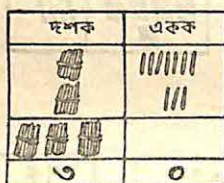 দশক একক
৩ ০